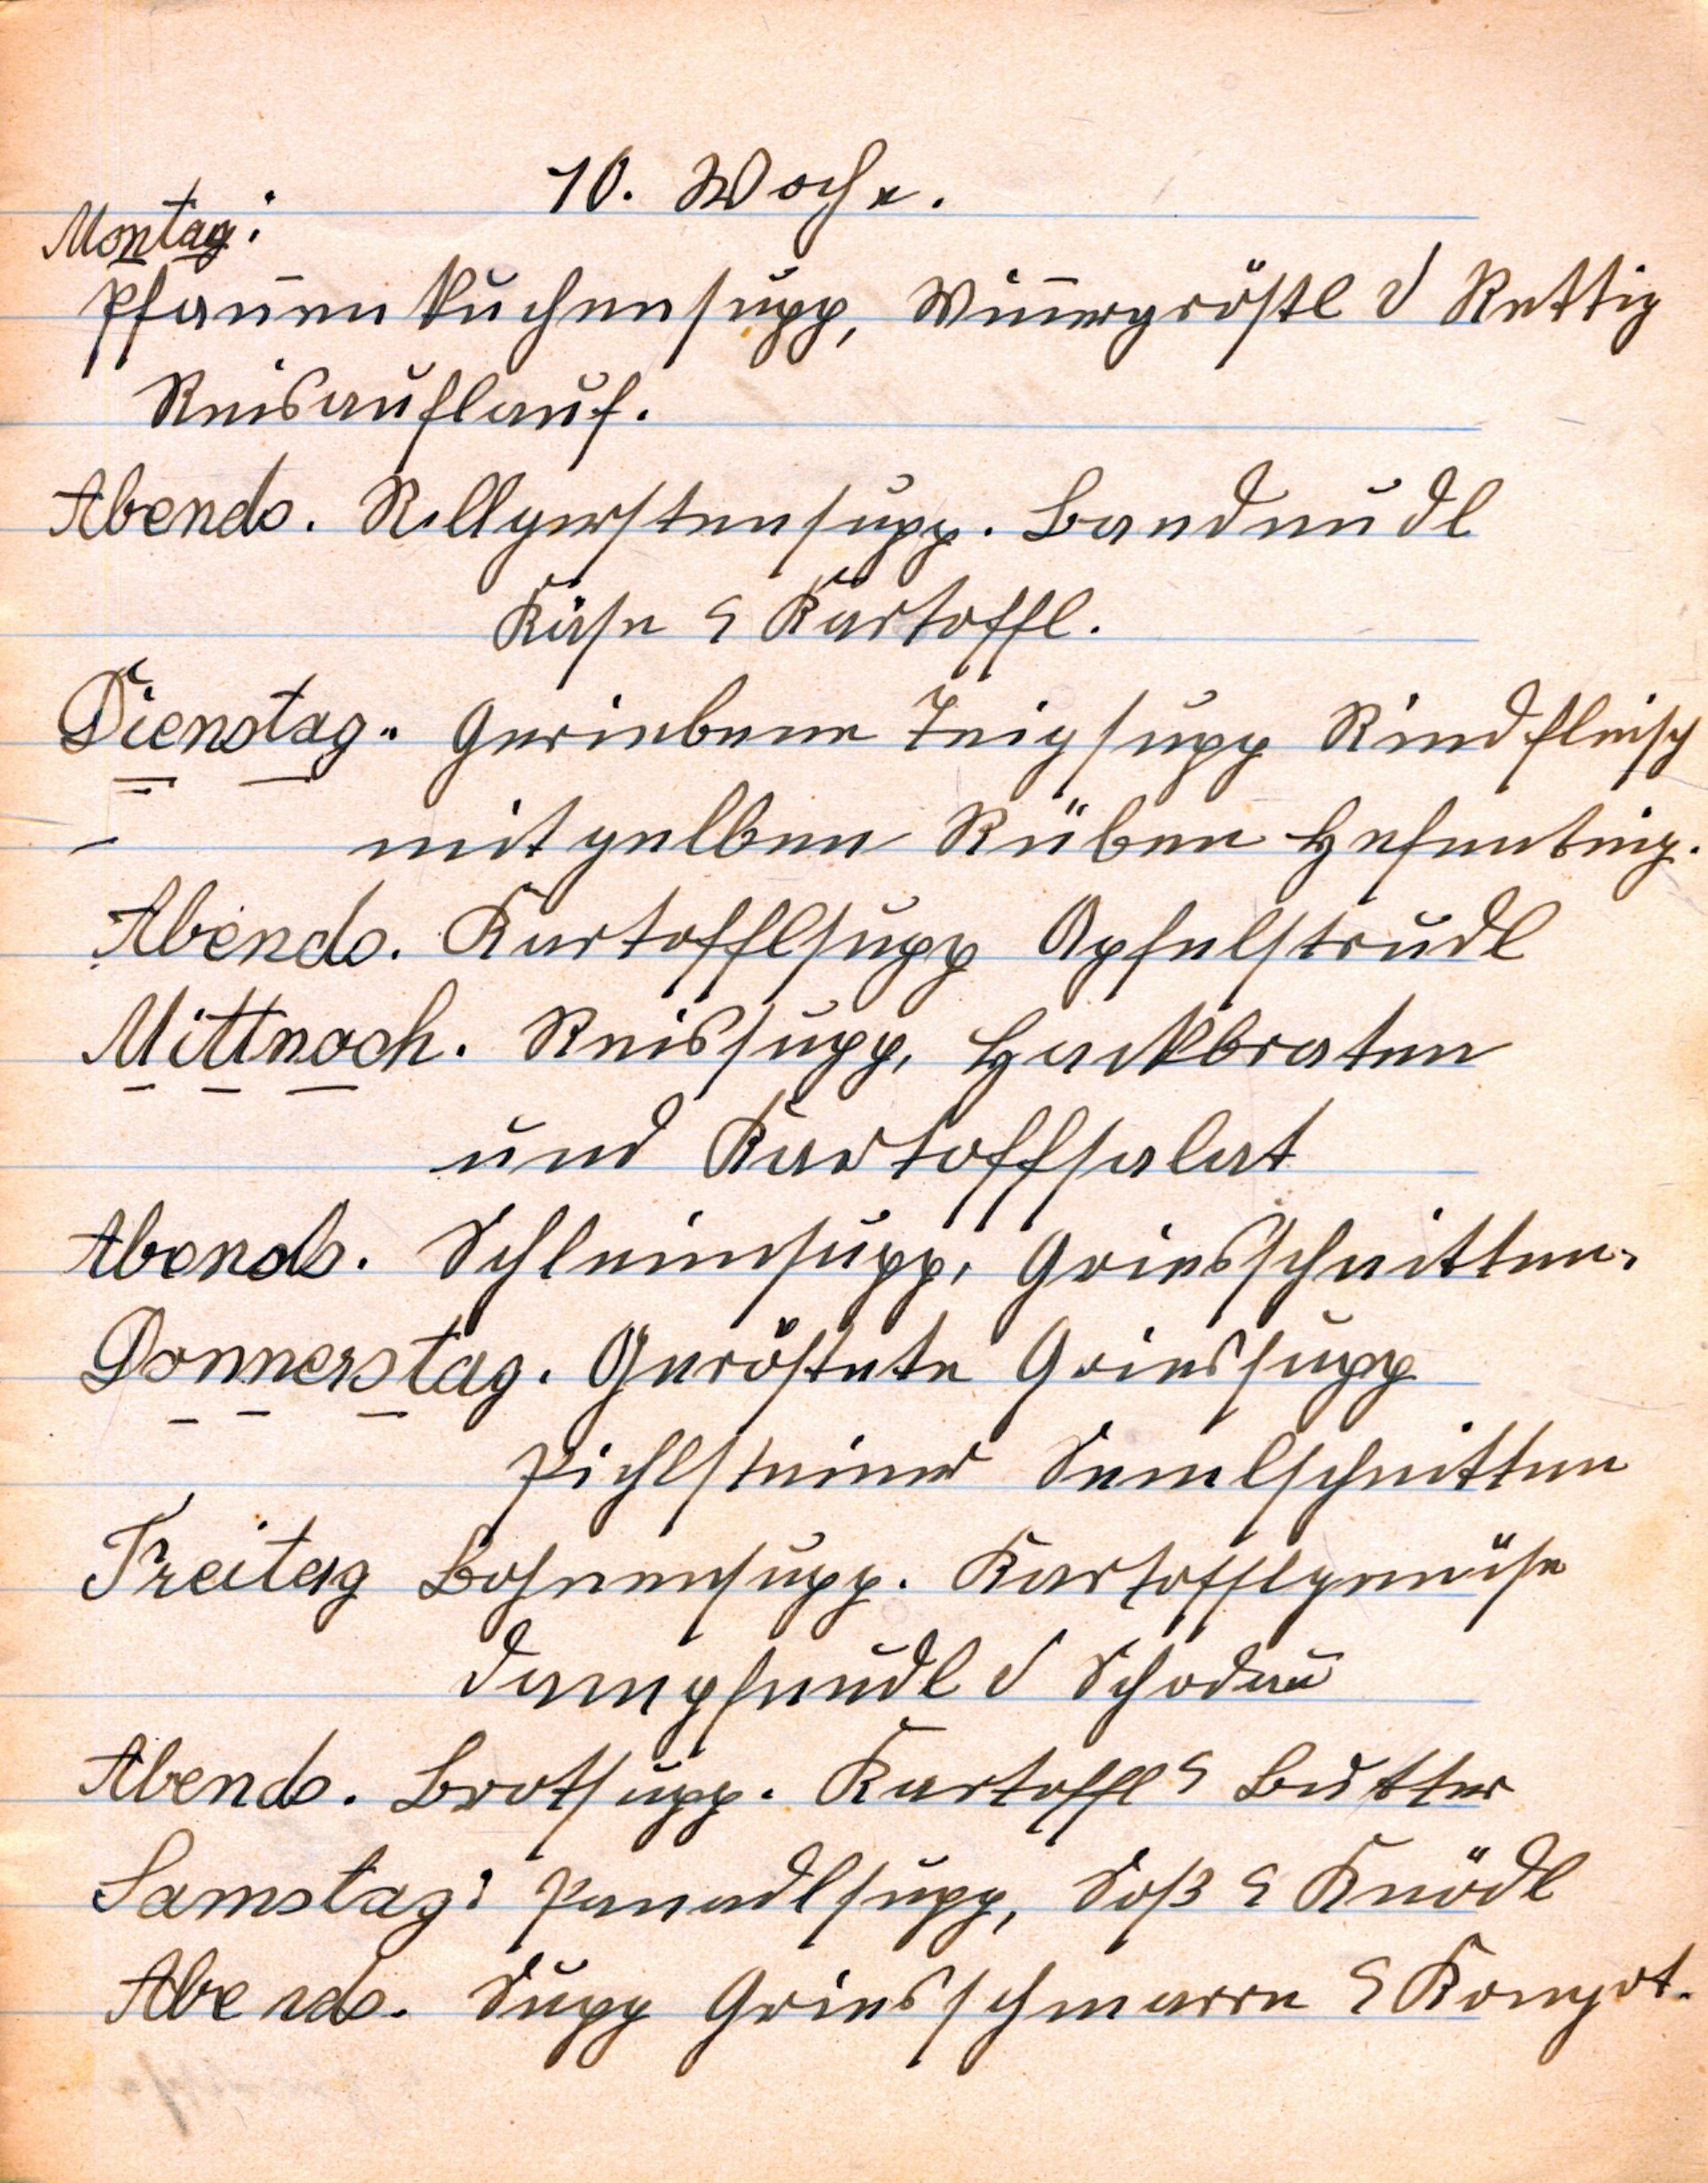 10. Woche.
Montag:
Pfannenkuchensupp, Wienergröstl d Rettig
Reisauflauf.
Abends. Rollgerstensupp. Bandnudl
Käse & Kartoffl.
Dienstag. Geriebene Teigsupp Rindfleisch
mit gelben Rüben Hefenteig.
Abends. Kartofflsupp Apfelstrudl
Mittwoch. Reissupp, Hackbraten
und Kartoffsalat
Abends. Schleimsupp, Griesschnitten.
Donnerstag. Geröstete Griessupp
Pichlsteiner Semelschnitten
Freitag Bohnensupp. Kartofflgemüse
Dampfnudl d Schodau
Abends. Brotsupp. Kartoffl & Butter
Samstag: Panadlsupp, Soß & Knödl
Abends. Supp Griesschmarrn & Kompot.